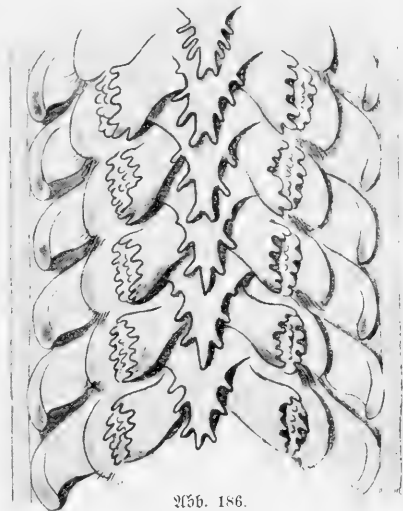 Abb. 186.